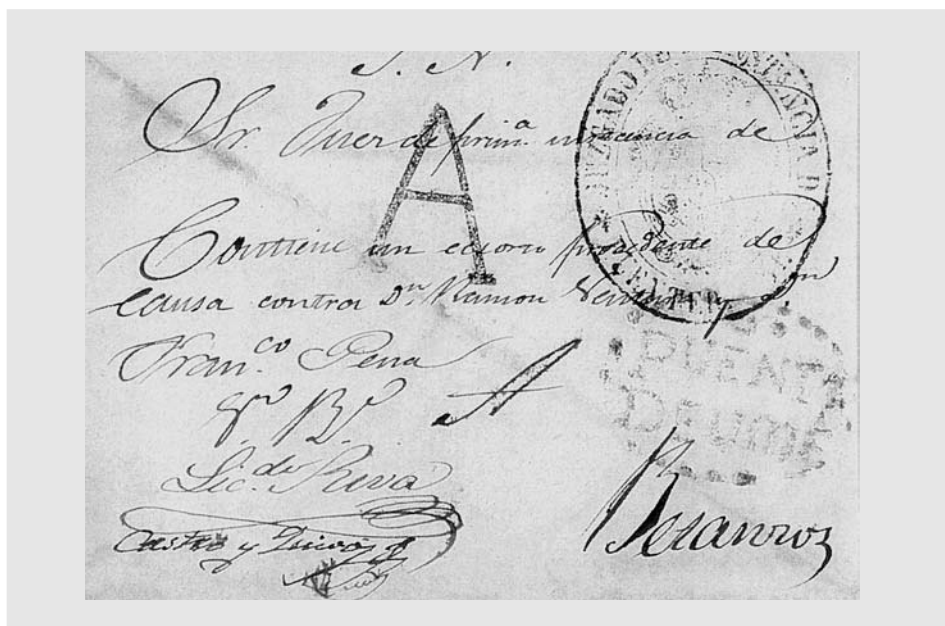 S. N.
Sr. Juez de prim.ª instancia de
Contiene un exorto procedente de
causa contra Dn. Ramon Ventura y Dn
Fran.co Pena
Vº Bº A
Lic.do Riva
Castro y
Betanzos
A
JUZGADO DE INSTANCIA D
PUENT
DEUME